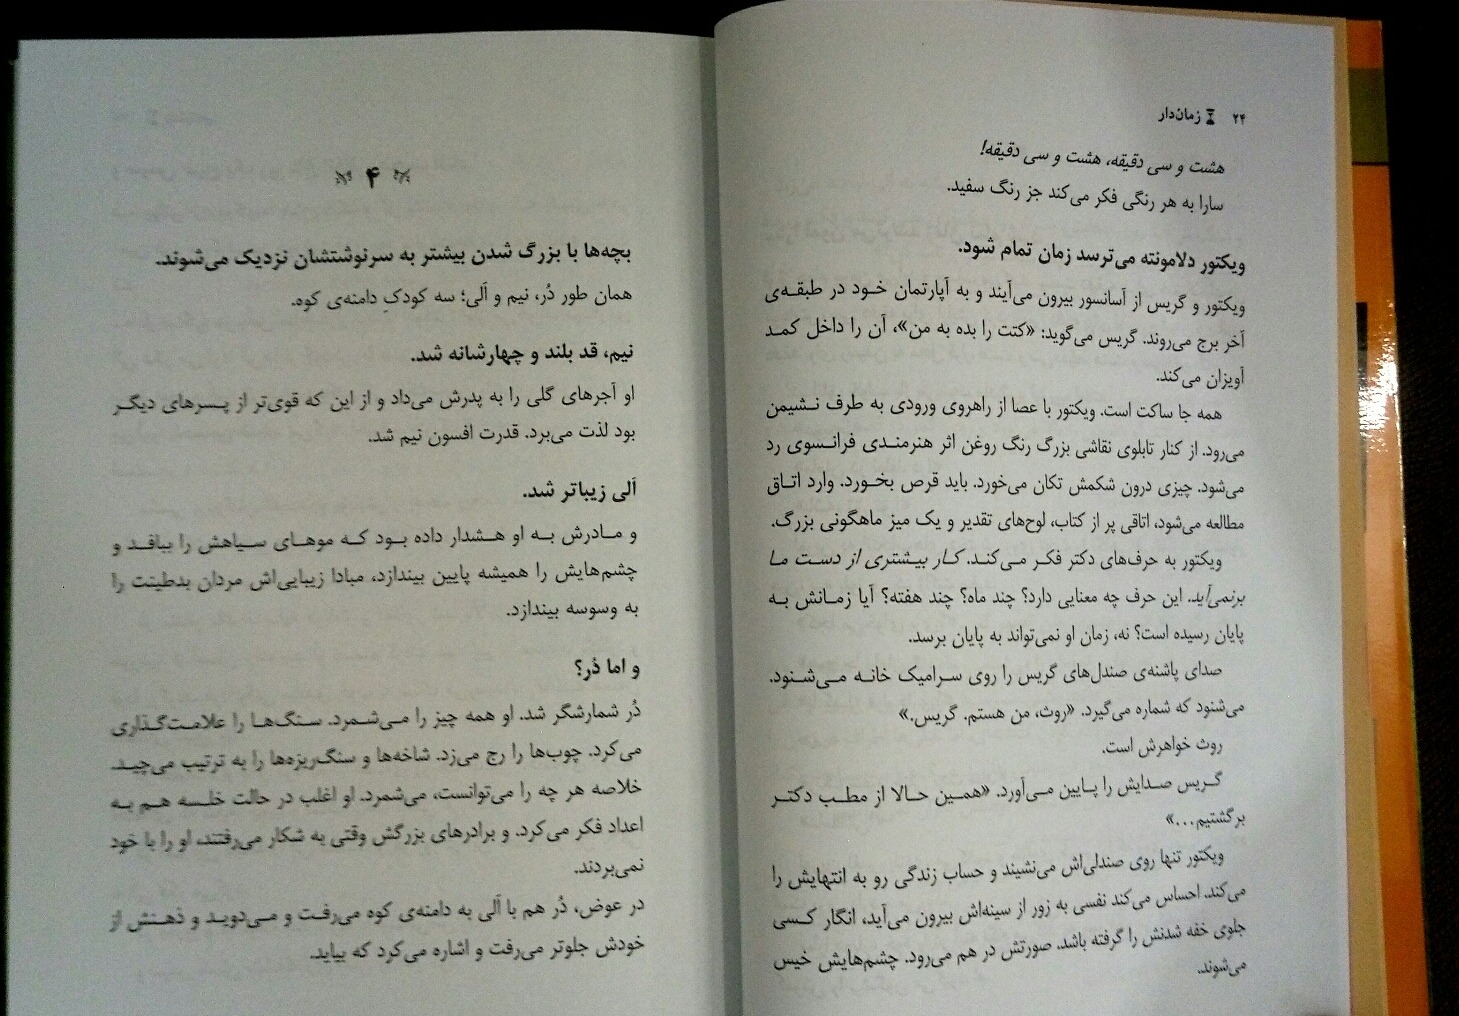 ۲۴ زمان‌دار
هشت و سی دقیقه، هشت و سی دقیقه!
سارا به هر رنگی فکر می‌کند جز رنگ سفید.
ویکتور دلامونته می‌ترسد زمان تمام شود.
ویکتور و گریس از آسانسور بیرون می‌آیند و به آپارتمان خود در طبقه‌ی
آخر برج می‌روند. گریس می‌گوید: «کتت را بده به من»، آن را داخل کمد
آویزان می‌کند.
همه جا ساکت است. ویکتور با عصا از راهروی ورودی به طرف نشیمن
می‌رود. از کنار تابلوی نقاشی بزرگ رنگ روغن اثر هنرمندی فرانسوی رد
می‌شود. چیزی درون شکمش تکان می‌خورد. باید قرص بخورد. وارد اتاق
مطالعه می‌شود، اتاقی پر از کتاب، لوح‌های تقدیر و یک میز ماهگونی بزرگ.
ویکتور به حرف‌های دکتر فکر می‌کند. کار بیشتری از دست ما
برنمی‌آید. این حرف چه معنایی دارد؟ چند ماه؟ چند هفته؟ آیا زمانش به
پایان رسیده است؟ نه، زمان او نمی‌تواند به پایان برسد.
صدای پاشنه‌ی صندل‌های گریس را روی سرامیک خانه می‌شنود.
می‌شنود که شماره می‌گیرد. «روث، من هستم. گریس.»
روث خواهرش است.
گریس صدایش را پایین می‌آورد. «همین حالا از مطب دکتر
برگشتیم...»
ویکتور تنها روی صندلی‌اش می‌نشیند و حساب زندگی رو به انتهایش را
می‌کند. احساس می‌کند نفسی به زور از سینه‌اش بیرون می‌آید، انگار کسی
جلوی خفه شدنش را گرفته باشد. صورتش در هم می‌رود. چشم‌هایش خیس
می‌شوند.
۴
بچه‌ها با بزرگ شدن بیشتر به سرنوشتشان نزدیک می‌شوند.
همان طور دُر، نیم و اَلی؛ سه کودکِ دامنه‌ی کوه.
نیم، قد بلند و چهارشانه شد.
او آجرهای گلی را به پدرش می‌داد و از این که قوی‌تر از پسرهای دیگر
بود لذت می‌برد. قدرت افسون نیم شد.
اَلی زیباتر شد.
و مادرش به او هشدار داده بود که موهای سیاهش را ببافد و
چشم‌هایش را همیشه پایین بیندازد، مبادا زیبایی‌اش مردان بدطینت را
به وسوسه بیندازد.
و اما دُر؟
دُر شمارشگر شد. او همه چیز را می‌شمرد. سنگ‌ها را علامت‌گذاری
می‌کرد. چوب‌ها را رج می‌زد. شاخه‌ها و سنگ‌ریزه‌ها را به ترتیب می‌چید.
خلاصه هر چه را می‌توانست، می‌شمرد. او اغلب در حالت خلسه هم به
اعداد فکر می‌کرد. و برادرهای بزرگش وقتی به شکار می‌رفتند، او را با خود
نمی‌بردند.
در عوض، دُر هم با اَلی به دامنه‌ی کوه می‌رفت و می‌دوید و ذهنش از
خودش جلوتر می‌رفت و اشاره می‌کرد که بیاید.